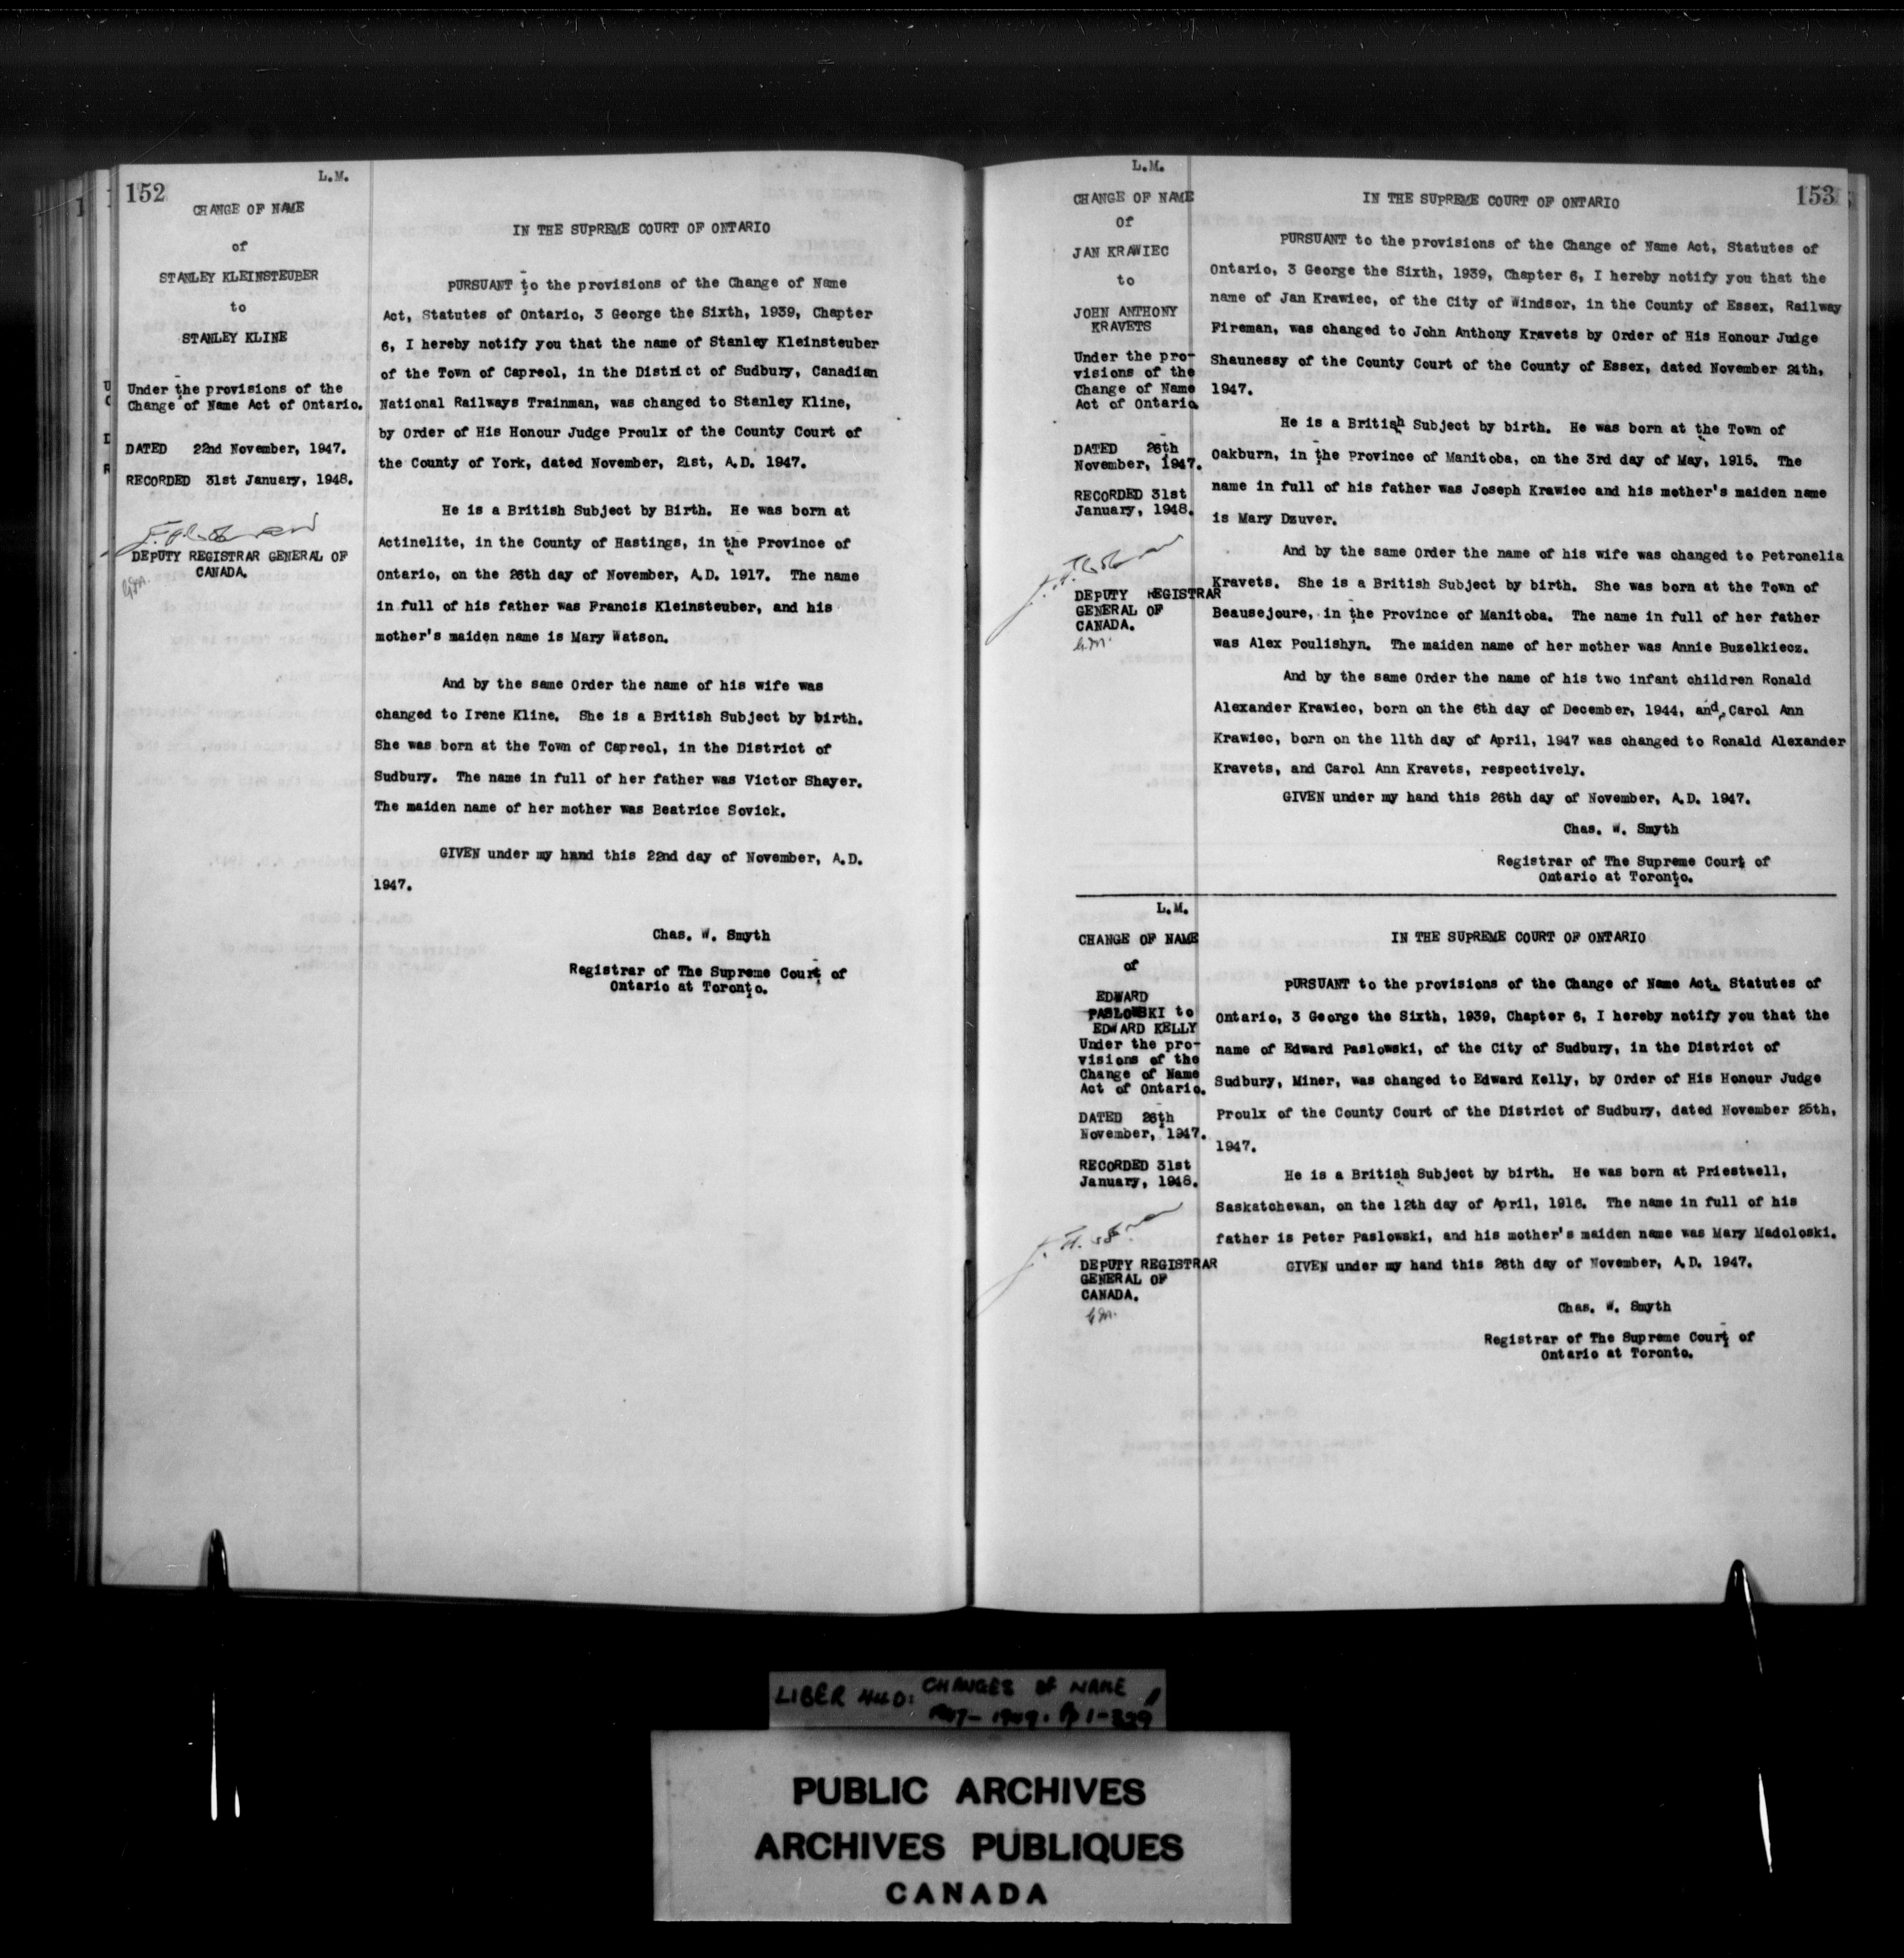 152
L.M.
CHANGE OF NAME
of
STANLEY KLEINSTEUBER
to
STANLEY KLINE
Under the provisions of the
Change of Name Act of Ontario.
DATED 22nd November, 1947.
RECORDED 31st January, 1948.
DEPUTY REGISTRAR GENERAL OF
CANADA.
IN THE SUPREME COURT OF ONTARIO
PURSUANT to the provisions of the Change of Name
Act, Statutes of Ontario, 3 George the Sixth, 1939, Chapter
6, I hereby notify you that the name of Stanley Kleinsteuber
of the Town of Capreol, in the District of Sudbury, Canadian
National Railways Trainman, was changed to Stanley Kline,
by Order of His Honour Judge Proulx of the County Court of
the County of York, dated November, 21st, A.D. 1947.
He is a British Subject by Birth. He was born at
Actinelite, in the County of Hastings, in the Province of
Ontario, on the 26th day of November, A.D. 1917. The name
in full of his father was Francis Kleinsteuber, and his
mother's maiden name is Mary Watson.
And by the same Order the name of his wife was
changed to Irene Kline. She is a British Subject by birth.
She was born at the Town of Capreol, in the District of
Sudbury. The name in full of her father was Victor Shayer.
The maiden name of her mother was Beatrice Sovick.
GIVEN under my hand this 22nd day of November, A.D.
1947.
Chas. W. Smyth
Registrar of The Supreme Court of
Ontario at Toronto.
153
L.M.
CHANGE OF NAME
of
JAN KRAWIEC
to
JOHN ANTHONY
KRAVETS
Under the pro-
visions of the
Change of Name
Act of Ontario.
DATED 26th
November, 1947.
RECORDED 31st
January, 1948.
DEPUTY REGISTRAR
GENERAL OF
CANADA.
G.M.
IN THE SUPREME COURT OF ONTARIO
PURSUANT to the provisions of the Change of Name Act, Statutes of
Ontario, 3 George the Sixth, 1939, Chapter 6, I hereby notify you that the
name of Jan Krawiec, of the City of Windsor, in the County of Essex, Railway
Fireman, was changed to John Anthony Kravets by Order of His Honour Judge
Shaunessy of the County Court of the County of Essex, dated November 24th,
1947.
He is a British Subject by birth. He was born at the Town of
Oakburn, in the Province of Manitoba, on the 3rd day of May, 1915. The
name in full of his father was Joseph Krawiec and his mother's maiden name
is Mary Dzuver.
And by the same Order the name of his wife was changed to Petronelia
Kravets. She is a British Subject by birth. She was born at the Town of
Beausejoure, in the Province of Manitoba. The name in full of her father
was Alex Poulishyn. The maiden name of her mother was Annie Buzelkiecz.
And by the same Order the name of his two infant children Ronald
Alexander Krawiec, born on the 6th day of December, 1944, and, Carol Ann
Krawiec, born on the 11th day of April, 1947 was changed to Ronald Alexander
Kravets, and Carol Ann Kravets, respectively.
GIVEN under my hand this 26th day of November, A.D. 1947.
Chas. W. Smyth
Registrar of The Supreme Court of
Ontario at Toronto.
L.M.
CHANGE OF NAME
of
EDWARD
PASLOWSKI to
EDWARD KELLY
Under the pro-
visions of the
Change of Name
Act of Ontario.
DATED 26th
November, 1947.
RECORDED 31st
January, 1948.
DEPUTY REGISTRAR
GENERAL OF
CANADA.
G.M.
IN THE SUPREME COURT OF ONTARIO
PURSUANT to the provisions of the Change of Name Act, Statutes of
Ontario, 3 George the Sixth, 1939, Chapter 6, I hereby notify you that the
name of Edward Paslowski, of the City of Sudbury, in the District of
Sudbury, Miner, was changed to Edward Kelly, by Order of His Honour Judge
Proulx of the County Court of the District of Sudbury, dated November 25th,
1947.
He is a British Subject by birth. He was born at Priestwell,
Saskatchewan, on the 12th day of April, 1916. The name in full of his
father is Peter Paslowski, and his mother's maiden name was Mary Madoloski.
GIVEN under my hand this 26th day of November, A.D. 1947.
Chas. W. Smyth
Registrar of The Supreme Court of
Ontario at Toronto.
LIBER 440: CHANGES OF NAME
1947-1949. Pp 1-
PUBLIC ARCHIVES
ARCHIVES PUBLIQUES
CANADA